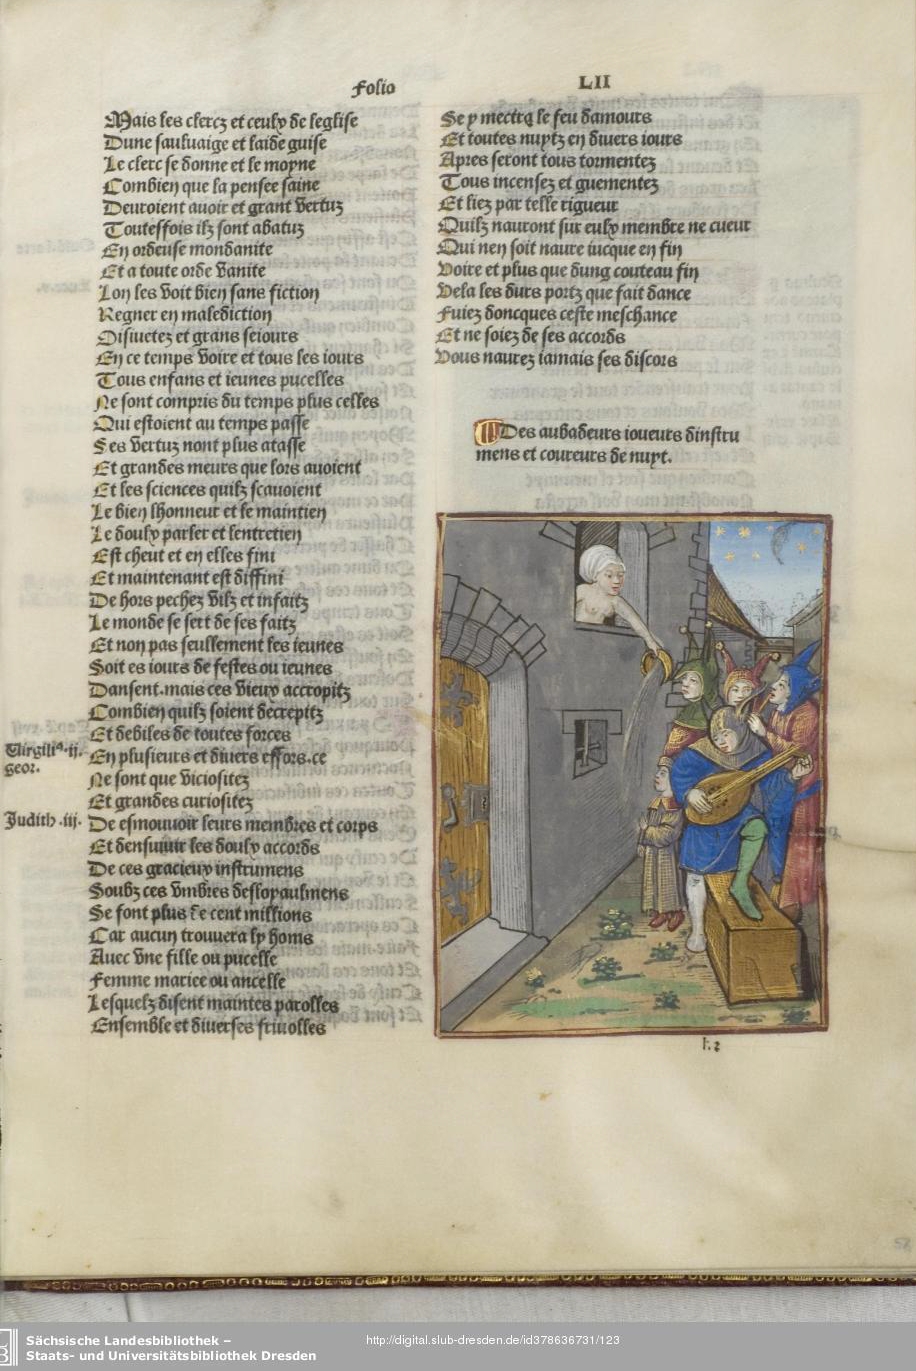 Folio
LII
Mais les clercz et ceulx de leglise
Dune sauluaige et laide guise
Le clerc se donne et le moyne
Combien que la pensee saine
Deuroient auoir et grant vertuz
Toutesfois ilz sont abatuz
En ordeuse mondanite
Et a toute orde vanite
Lon les voit bien sans fiction
Regner en malediction
Oisiuetez et grans seiours
En ce temps voire et tous les iours
Tous enfans et ieunes pucelles
Ne sont compris du temps plus celles
Qui estoient au temps passe
Ses vertuz nont plus atasse
Et grandes meurs que lors auoient
Et les sciences quilz scauoient
Le bien lhonneur et le maintien
Le doulx parler et lentretien
Est cheut et en elles fini
Et maintenant est diffini
De hors pechez vilz et infaitz
Le monde se sert de ses faitz
Et non pas seullement les ieunes
Soit es iours de festes ou ieunes
Dansent.mais ces vieux accropitz
Combien quilz soient decrepitz
Et debiles de toutes forces
Virgiliꝰ.ii.
geor.
En plusieurs et diuers effors.ce
Ne sont que viciositez
Et grandes curiositez
Judith.iij.
De esmouuoir leurs membres et corps
Et densuiuir les doulx accords
De ces gracieux instrumens
Soubz ces vmbres dessopaulmens
Se font plus de cent millions
Car aucun trouuera ly homs
Auec vne fille ou pucelle
Femme mariee ou ancelle
Lesquelz disent maintes parolles
Ensemble et diuerses friuolles
Se y mectra le feu damours
Et toutes nuytz en diuers iours
Apres seront tous tormentez
Tous incensez et guementez
Et liez par telle rigueur
Quilz nauront sur eulx membre ne cueur
Qui nen soit naure iucque en fin
Voire et plus que dung couteau fin
Vela les durs portz que fait dance
Fuiez doncques ceste meschance
Et ne soiez de ses accords
Vous naurez iamais ses discors
Des aubadeurs ioueurs dinstru
mens et coureurs de nuyt.
k.2
Sächsische Landesbibliothek –
Staats- und Universitätsbibliothek Dresden
http://digital.slub-dresden.de/id378636731/123